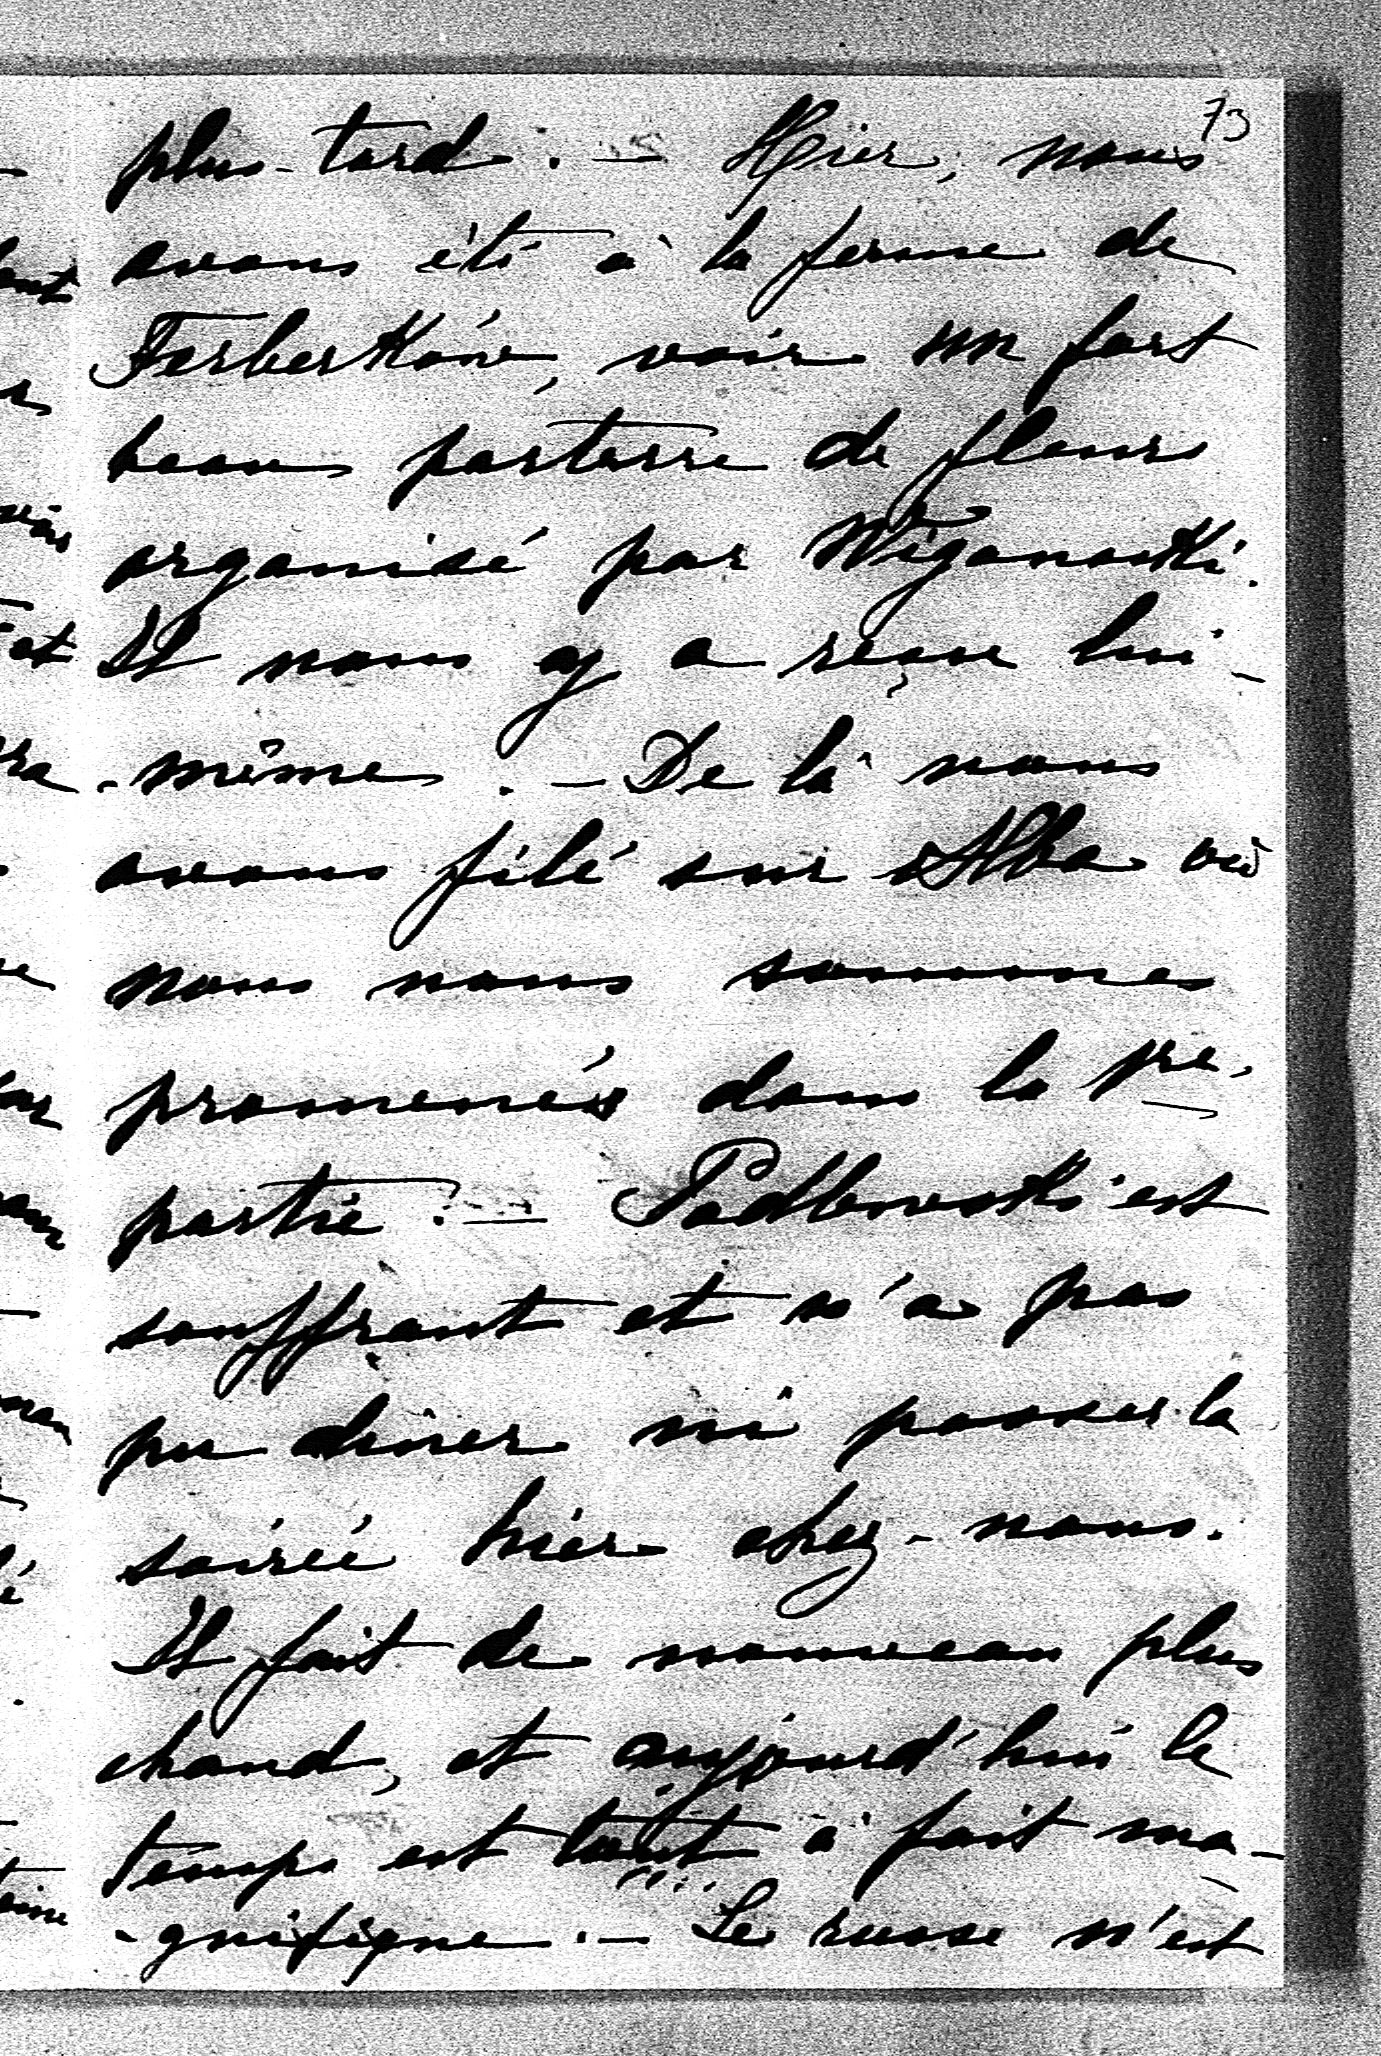 73
plus-tard. — Hier, nous
avons été à la ferme de
voir un fort
beau parterre de fleurs
organisé par Wiganowski.
Il nous y a reçue lui-
-même. — De là nous
avons filé sur Alba où
nous nous sommes
promenés dans la pre-
partie. — est
souffrant et n'a pas
pu diner ni passer la
soirée hier chez-nous.
Il fait de nouveau plus
chaud, et aujourd'hui le
temps est tout à fait ma-
-gnifique. — Le russe n'est